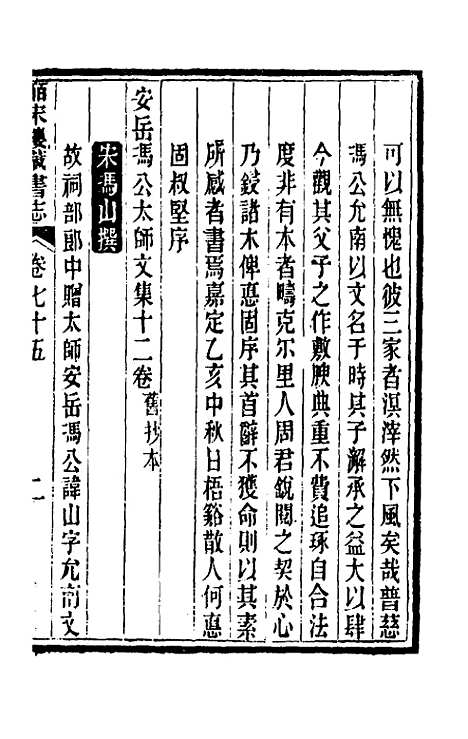 可以無愧也彼三家者溟涬然下風矣哉普慈
馮公允南以文名于時其子澥承之益大以肆
今觀其父子之作敷腴典重不費追琢自合法
度非有本者疇克尔里人周君銳閱之契於心
乃鋟諸木俾悳固序其首辭不獲命則以其素
所感者書焉嘉定乙亥中秋日梧谿散人何悳
固叔堅序
安岳馮公太師文集十二卷舊抄本
宋馮山撰
故祠部郎中贈太師安岳馮公諱山字允南文
皕宋樓藏書志 卷七十五 二